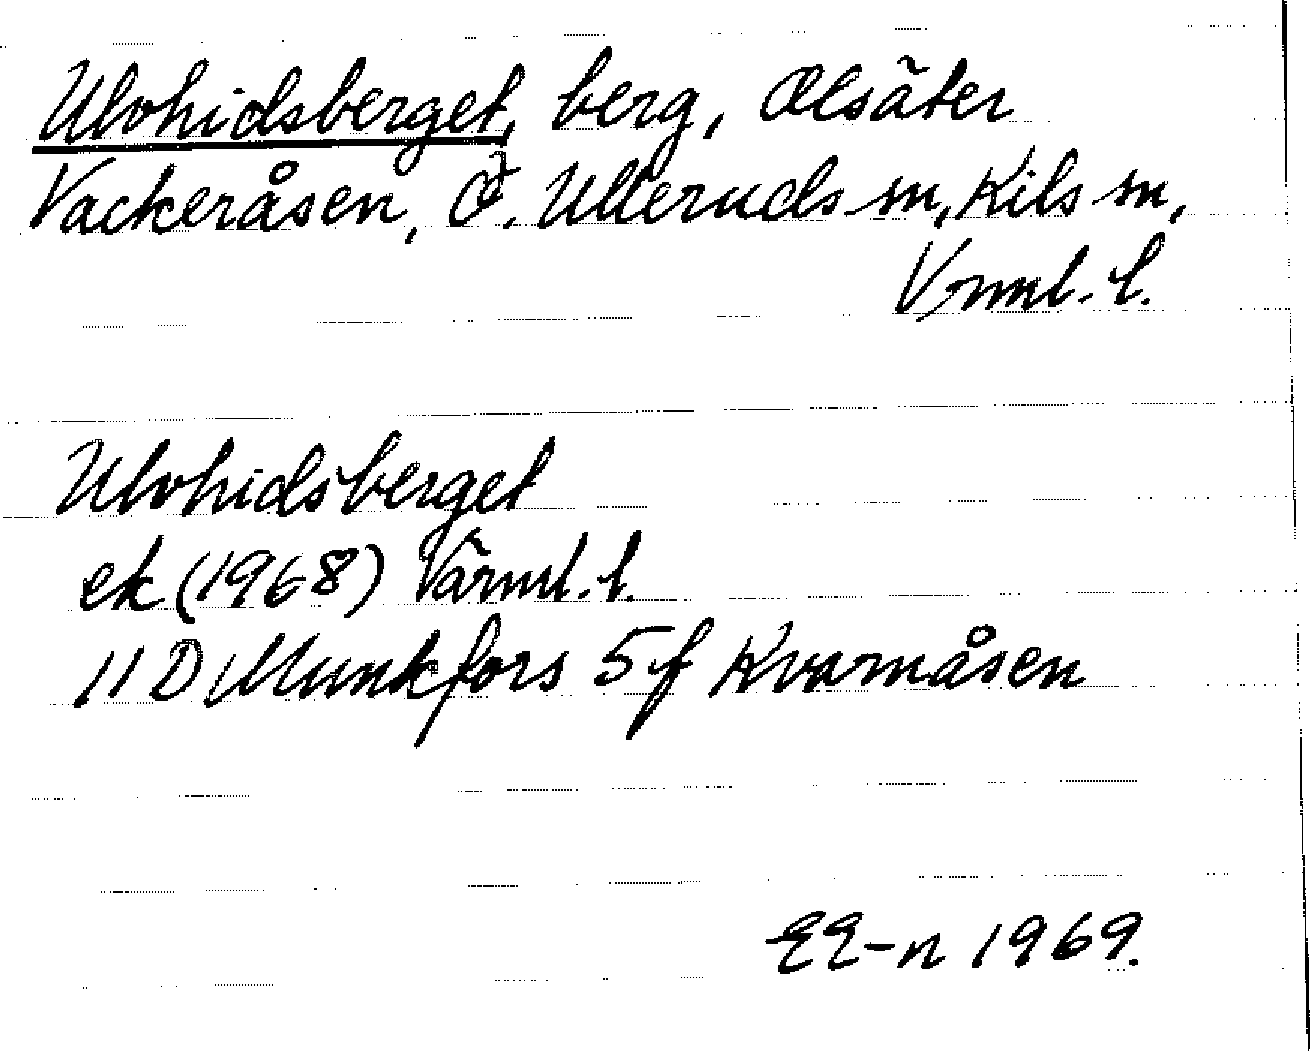 Ulvhidsberget, berg, Ölsäter
Vackeråsen, Ö. Ulleruds sn, Kils sn,
Vrml. l.
Ulvhidsberget
ek (1968) Värml. l.
11 D Munkfors 5 f Kvarnåsen
EE-n 1969.